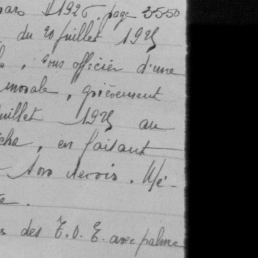 mars 1926, page 2550
du 20 juillet 1925
, sous officier d'une
morale, grièvement
juillet 1925 au
en faisant
son devoir. Mé-
des T. O. E. avec palme